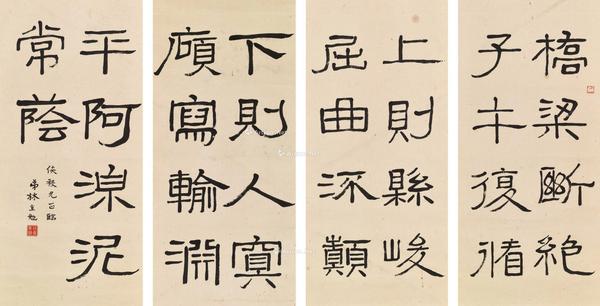 橋梁斷絕
子午復循
上則縣峻
屈曲流顛
下則入冥
廎寫輸淵
平阿湶泥
常蔭
弟林直勉